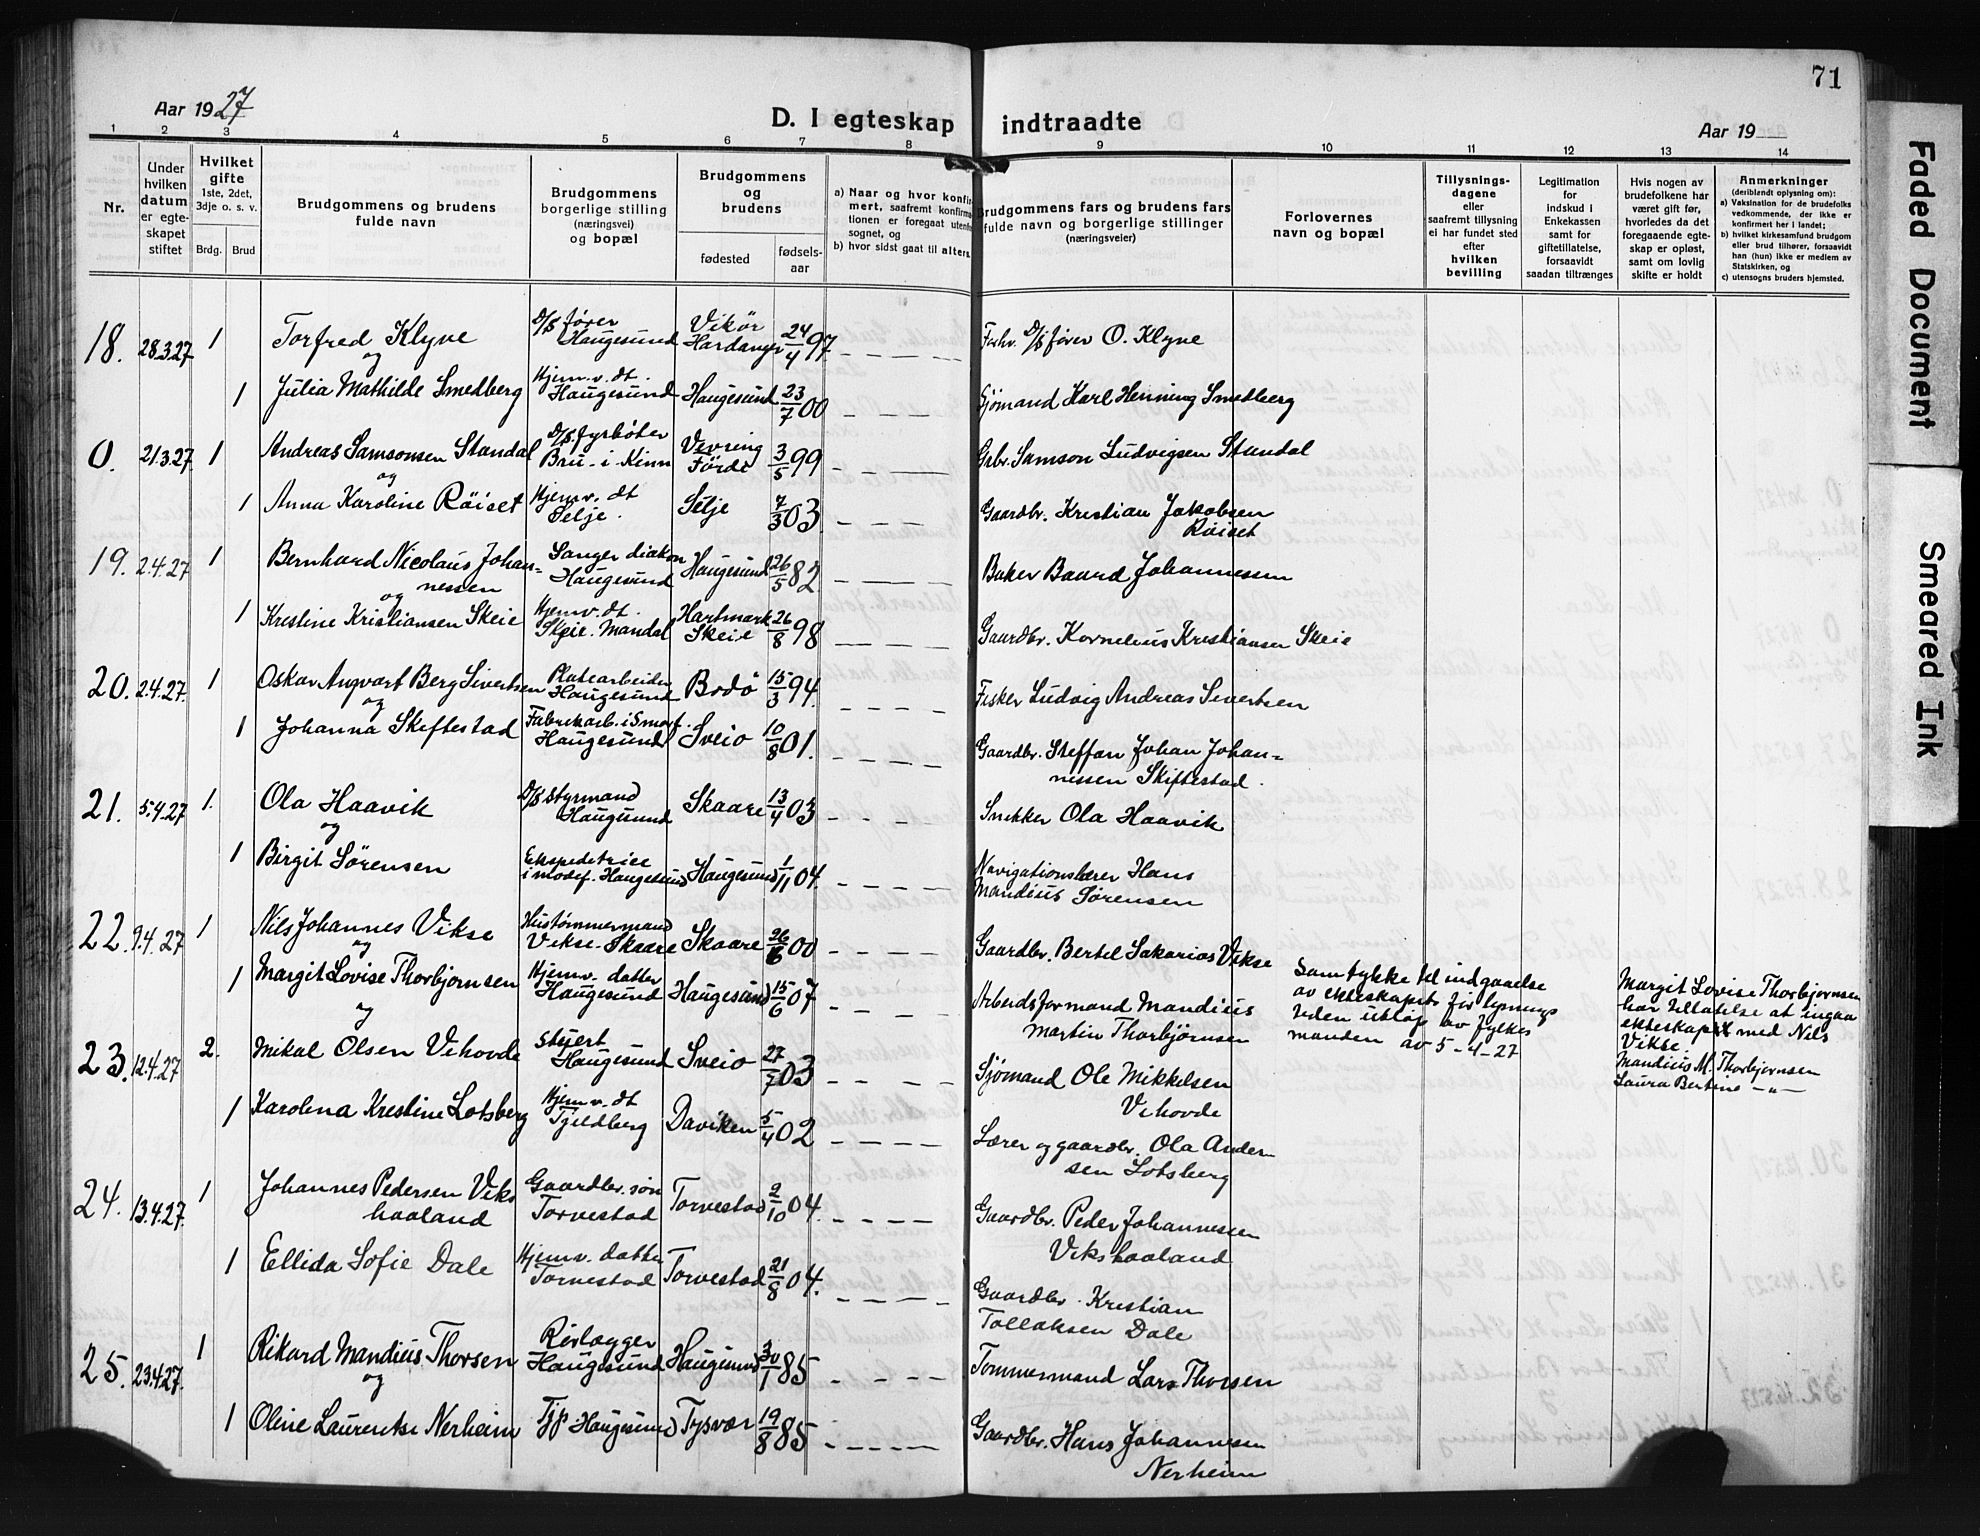 71
Aar 1927
D. I egteskap indtraadte
Aar 19
1 2 3 4 5 6 7 8 9 10 11 12 13 14
Nr.
Under
hvilken
datum
er egte-
skapet
stiftet
Hvilket
gifte
1ste, 2det,
3dje o. s. v.
Brdg. Brud
Brudgommens og brudens
fulde navn
Brudgommens
borgerlige stilling
(næringsvei)
og bopæl
Brudgommens
og
brudens
fødested
fødsels-
aar
a) Naar og hvor konfir-
mert, saafremt konfirma-
tionen er foregaat utenfor
sognet, og
b) hvor sidst gaat til alters.
Brudgommens fars og brudens fars
fulde navn og borgerlige stillinger
(næringsveier)
Forlovernes
navn og bopæl
Tillysnings-
dagene
eller
saafremt tillysning
ei har fundet sted
efter
hvilken
bevilling
Legitimation
for
indskud i
Enkekassen
samt for
giftetillatelse,
forsaavidt
saadan tiltrænges
Hvis nogen av
brudefolkene har
været gift før,
hvorledes da det
foregaaende egte-
skap er opløst,
samt om lovlig
skifte er holdt
Anmerkninger
(deriblandt oplysning om):
a) Vaksination for de brudefolks
vedkommende, der ikke er
konfirmert her i landet;
b) hvilket kirkesamfund brudgom
eller brud tilhører, forsaavidt
han (hun) ikke er medlem av
Statskirken, og
c) utensogns bruders hjemsted.
18. 28.3.27 1 Torfred Klyve D/S fører Haugesund Vikör Hardanger 24/4 97. Forhv. D/S fører O. Klyve
og
1 Julia Mathilde Smedberg Hjemv. dt. Haugesund Haugesund 23/7 00 Sjömand Karl Henning Smedberg
0. 21.3.27 1 Andreas Samsonsen Standal D/S fyrböter Bru - i Kinn Vevring Förde 3/5 99 Grbr. Samson Ludvigsen Standal
og
1 Anna Karoline Röiset Hjemv. dt Selje. Selje 7/3 03 Gaardbr. Kristian Jakobsen
Röiset
19. 2.4.27 1 Bernhard Nicolaus Johan= Sanger diakon Haugesund Haugesund 26/5 82 Baker Baard Johannessen
nessen
og
1 Kristine Kristiansen Skeie Hjemv. dt. Skeie. Mandal Hartmark Skeie 26/8 98 Gaardbr. Kornelius Kristiansen Skeie
20. 2.4.27. 1 Oskar Angvart Berg Sivertsen Platearbeider Haugesund Bodö 15/3 94. Fisker Ludvig Andreas Sivertsen
og
1 Johanna Skeftestad Fabrikarb. i Smørf. Haugesund Sveio 10/8 01. Gaardbr. Steffan Johan Johan=
nessen Skiftestad.
21. 5.4.27 1. Ola Haavik D/S Styrmand Haugesund Skaare 13/4 03 Snekker Ola Haavik
og
1 Birgit Sörensen Ekspeditrice i modef. Haugesund Haugesund 1/11 04. Navigationslærer Hans
Mandius Sörensen
22. 9.4.27 1 Nils Johannes Vikse Hustømmermand Vikse. Skaare Skaare 26/6 00 Gaardbr. Bertel Sakarias Vikse
og
1 Margit Lovise Thorbjörnsen Hjemv. datter Haugesund Haugesund 15/6 07 Arbeidsformand Mandius
Martin Thorbjörnsen
Samtykke til indgaaelse
av ekteskapet för lysnings
tiden utlöp av fylkes
manden av 5-4-27
Margit Lovise Thorbjørnsen
har tillatelse at ingaa
ekteskapet med Nils
Vikse.
Mandius M. Thorbjørnsen
Laura Bertine - " -
og
23. 12.4.27 2. Mikal Olsen Vihovde Stuert Haugesund Sveio 27/7 03 Sjömand Ole Mikkelsen
Vihovde
1 Karolina Kristine Lotsberg Hjemv. dt Tjeldberg Daviken 5/4 02 Lærer og gaardbr. Ola Ander
sen Lotsberg
24. 13.4.27. 1 Johannes Pedersen Viks Gaardbr. søn Torvestad Torvestad 2/10 04. Gaardbr. Peder Johannessen
haaland Vikshaaland
1 Ellida Sofie Dale Hjemv. datter Torvestad Torvestad 21/8 04. Gaardbr. Kristian
Tollaksen Dale
25. 23.4.27. 1 Rikard Mandius Thorsen Rörlægger Haugesund Haugesund 30/1 85 Tömmermand Lars Thorsen
og
1 Oline Laurentse Nerheim Tjp. Haugesund Tysvær 19/8 85 Gaardbr. Hans Johannesen
Nerheim
Faded Document
Smeared Ink